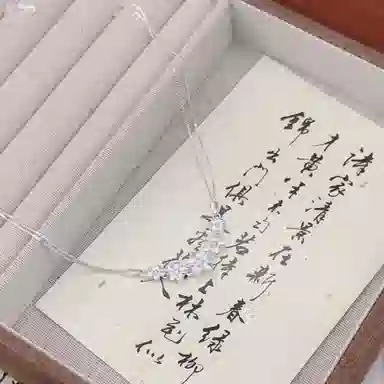 诗家清景在新春绿柳
才黄半未匀若待上林花似
錦出门俱是人